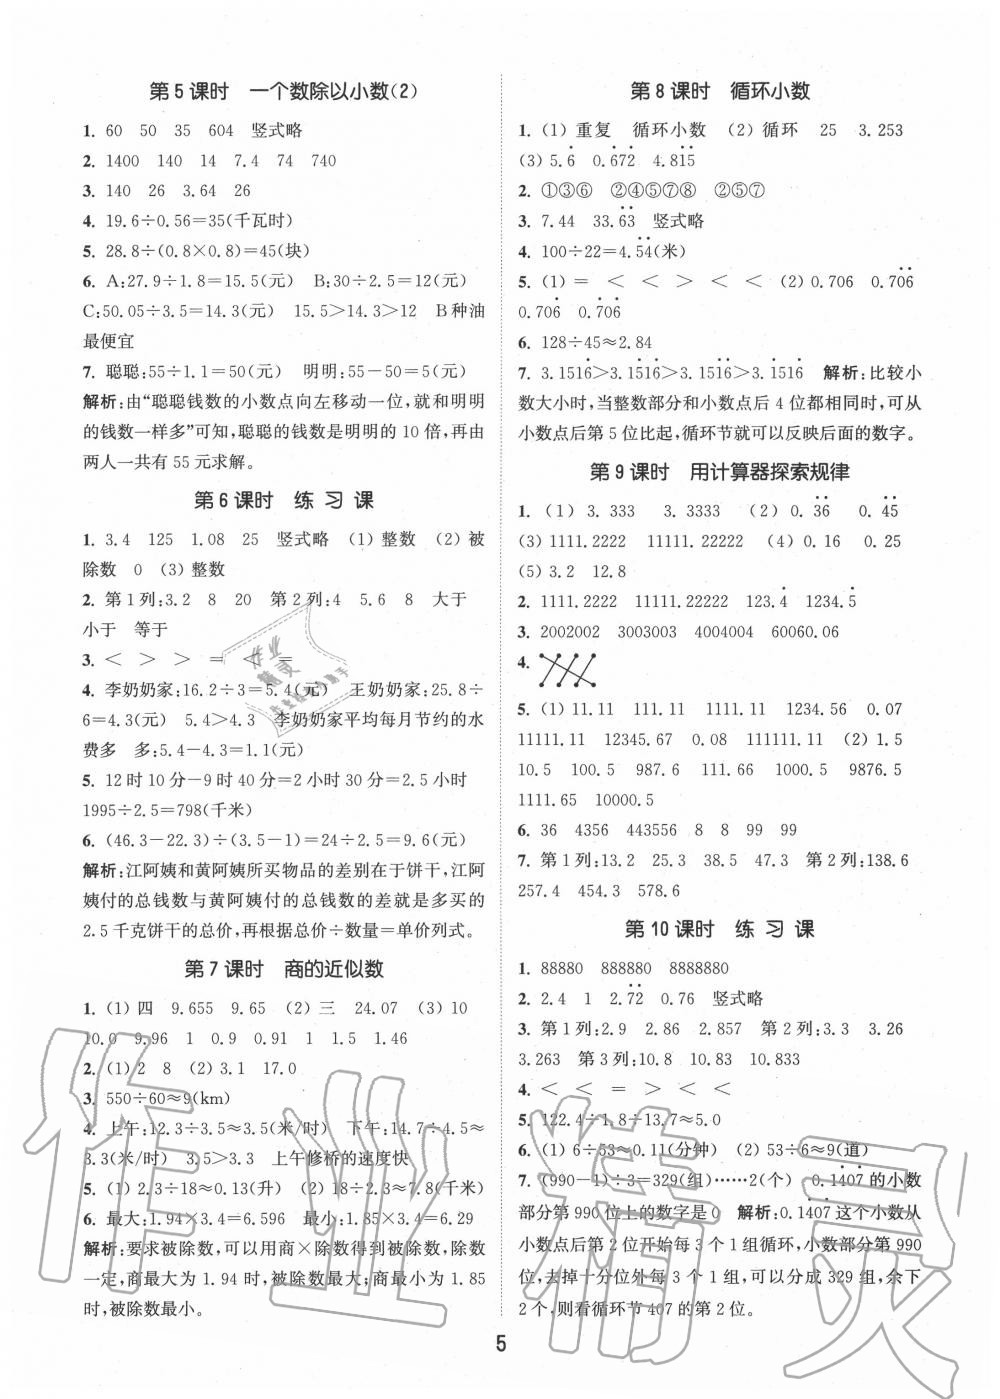 第5课时 一个数除以小数(2)
1. 60 50 35 604 竖式略
2. 1400 140 14 7.4 74 740
3. 140 26 3.64 26
4. 19.6÷0.56=35(千瓦时)
5. 28.8÷(0.8×0.8)=45(块)
6. A:27.9÷1.8=15.5(元) B:30÷2.5=12(元)
C:50.05÷3.5=14.3(元) 15.5>14.3>12 B种油
最便宜
7. 聪聪:55÷1.1=50(元) 明明:55-50=5(元)
解析:由“聪聪钱数的小数点向左移动一位,就和明明
的钱数一样多”可知,聪聪的钱数是明明的 10 倍,再由
两人一共有 55 元求解。
第6课时 练 习 课
1. 3.4 125 1.08 25 竖式略 (1) 整数 (2) 被
除数 0 (3) 整数
2. 第1列:3.2 8 20 第2列:4 5.6 8 大于
小于 等于
3. < > > = < =
4. 李奶奶家:16.2÷3=5.4(元) 王奶奶家:25.8÷
6=4.3(元) 5.4>4.3 李奶奶家平均每月节约的水
费多 多:5.4-4.3=1.1(元)
5. 12时10分-9时40分=2小时30分=2.5小时
1995÷2.5=798(千米)
6. (46.3-22.3)÷(3.5-1)=24÷2.5=9.6(元)
解析:江阿姨和黄阿姨所买物品的差别在于饼干,江阿
姨付的总钱数与黄阿姨付的总钱数的差就是多买的
2.5千克饼干的总价,再根据总价÷数量=单价列式。
第7课时 商的近似数
1. (1) 四 9.655 9.65 (2) 三 24.07 (3) 10
10.0 9.96 1 0.9 0.91 1 1.5 1.46
2. (1) 2 8 (2) 3.1 17.0
3. 550÷60≈9(km)
4. 上午:12.3÷3.5≈3.5(米/时) 下午:14.7÷4.5≈
3.3(米/时) 3.5>3.3 上午修桥的速度快
5. (1) 2.3÷18≈0.13(升) (2) 18÷2.3≈7.8(千米)
6. 最大:1.94×3.4=6.596 最小:1.85×3.4=6.29
解析:要求被除数,可以用商×除数得到被除数,除数
一定,商最大为 1.94 时,被除数最大;商最小为 1.85
时,被除数最小。
第8课时 循环小数
1. (1) 重复 循环小数 (2) 循环 25 3.253
(3) 5.6̇ 0.6̇72̇ 4.81̇5̇
2. ①③⑥ ②④⑤⑦⑧ ②⑤⑦
3. 7.44 33.6̇3̇ 竖式略
4. 100÷22=4.5̇4̇(米)
5. (1) = < < > < < (2) 0.706 0.70̇6̇
0.706̇ 0.7̇06̇
6. 128÷45≈2.84
7. 3.1516̇>3.1̇516̇>3.151̇6̇>3.15̇16̇ 解析:比较小
数大小时,当整数部分和小数点后 4 位都相同时,可从
小数点后第 5 位比起,循环节就可以反映后面的数字。
第9课时 用计算器探索规律
1. (1) 3.333 3.3333 (2) 0.3̇6̇ 0.4̇5̇
(3) 1111.2222 11111.22222 (4) 0.16 0.25
(5) 3.2 12.8
2. 1111.2222 11111.22222 123.4̇ 1234.5̇
3. 2002002 3003003 4004004 60060.06
4.
5. (1) 11.11 111.11 1111.11 1234.56 0.07
11111.11 12345.67 0.08 111111.11 (2) 1.5
10.5 100.5 987.6 111.66 1000.5 9876.5
1111.65 10000.5
6. 36 4356 443556 8 8 99 99
7. 第1列:13.2 25.3 38.5 47.3 第2列:138.6
257.4 454.3 578.6
第10课时 练 习 课
1. 88880 888880 8888880
2. 2.4 1 2.7̇2̇ 0.76 竖式略
3. 第1列:2.9 2.86 2.857 第2列:3.3 3.26
3.263 第3列:10.8 10.83 10.833
4. < < = > < <
5. 122.4÷1.8÷13.7≈5.0
6. (1) 6÷53≈0.11(分钟) (2) 53÷6≈9(道)
7. (990-1)÷3=329(组)……2(个) 0.14̇07̇ 的小数
部分第 990 位上的数字是 0 解析:0.14̇07̇ 这个小数从
小数点后第 2 位开始每 3 个 1 组循环,小数部分第 990
位,去掉十分位外每 3 个 1 组,可以分成 329 组,余下
2 个,则看循环节 407 的第 2 位。
5
作业精灵